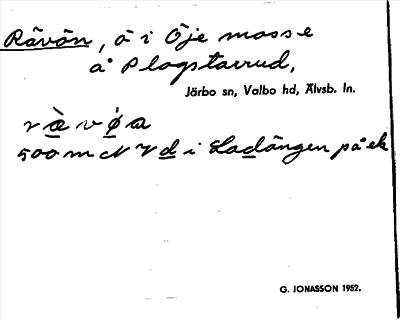 Rävön, ö i Öje mosse
å Plogstarrud,
Järbo sn, Valbo hd, Älvsb. ln.
rä̀vǿa
500 m N V d i Ladängen på ek
G. JONASSON 1952.